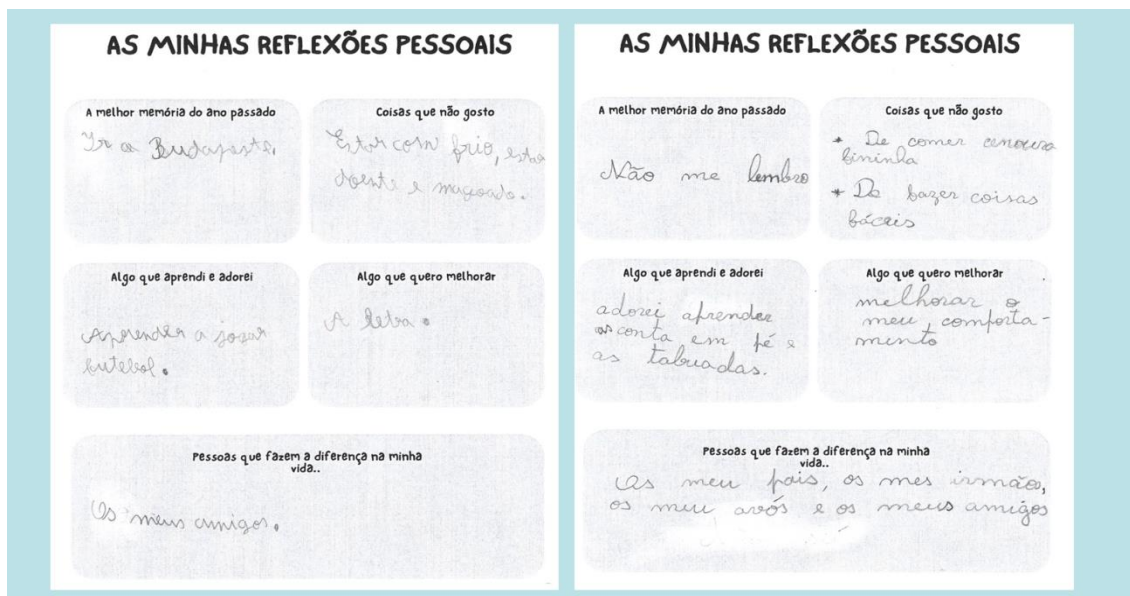 AS MINHAS REFLEXÕES PESSOAIS
A melhor memória do ano passado
Ir a Budapeste.
Coisas que não gosto
Estar com frio, estar
doente e magoado.
Algo que aprendi e adorei
Aprender a jogar
futebol.
Algo que quero melhorar
A letra.
Pessoas que fazem a diferença na minha
vida..
Os meus amigos.
AS MINHAS REFLEXÕES PESSOAIS
A melhor memória do ano passado
Não me lembro
Coisas que não gosto
* De comer cenoura
fininha
* De fazer coisas
fáceis
Algo que aprendi e adorei
adorei aprender
as conta em pé e
as tabuadas.
Algo que quero melhorar
melhorar o
meu comporta-
mento
Pessoas que fazem a diferença na minha
vida..
Os meu pais, os mes irmãos,
os meu avós e os meus amigos